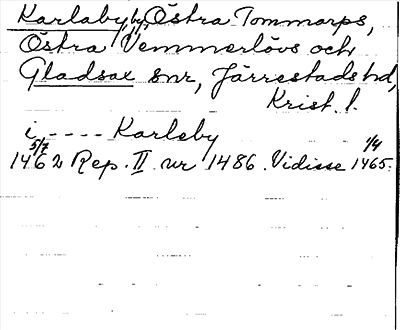 Karlaby, by, Östra Tommarps,
Östra Vemmerlövs och
Gladsax snr, Järrestads hd,
Krist. l.
i - - - - Karleby
5/7 1/4
1462 Rep. II nr 1486. Vidisse 1465.